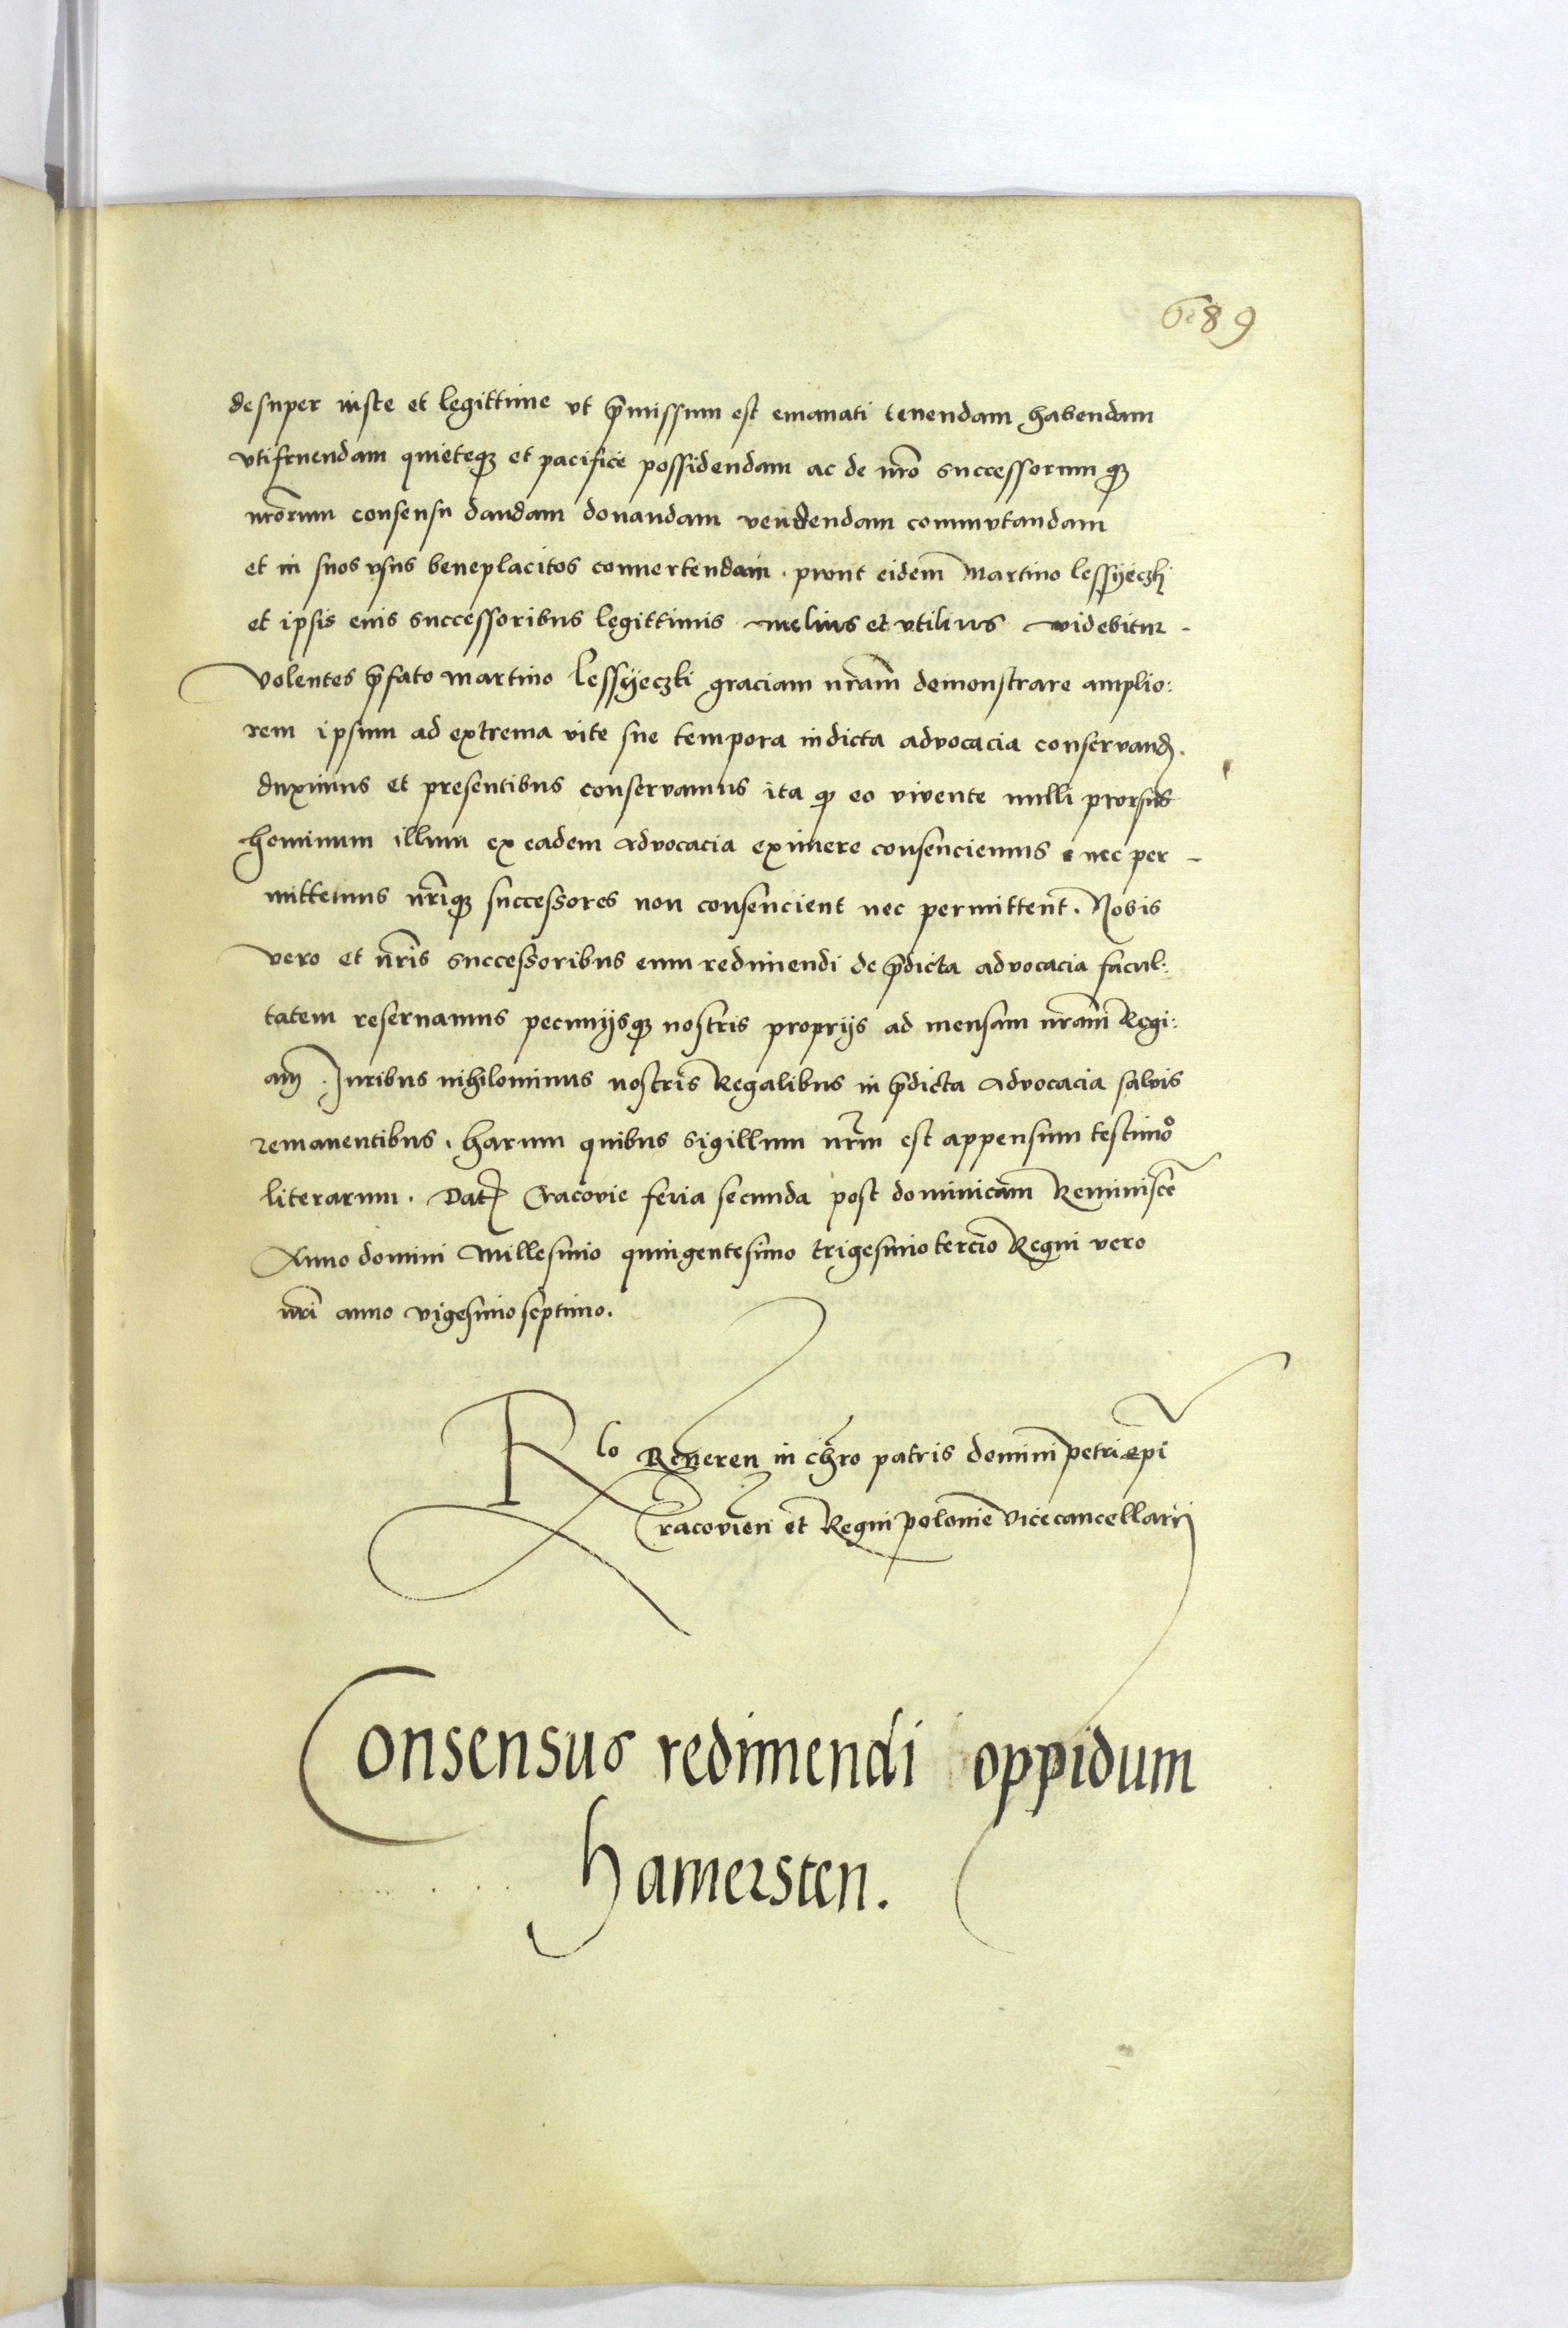 689
desuper iuste et legittime vt p̄missum est emanati tenendam habendam
vtifruendam quieteq₃ et pacifice possidendam ac de nr̄o successorumq₃
nr̄orum consensu dandam donandam vendendam commutandam
et in suos vsus beneplacitos conuertendam . prout eidem̄ Martino lessyeczki
et ipsis eius successoribus legittimis melius et vtilius videbitur -
volentes p̄fato martino lessyeczki graciam nr̄am demonstrare amplio:
rem ipsum ad extrema vite sue tempora in dicta advocacia conservand̄.
duximus et presentibus conservamus ita q₃ eo vivente nulli prorsus
hominum illum ex eadem advocacia eximere consenciemus nec per -
mittemus nr̄iq₃ successores non consencient nec permittent̄. Nobis
vero et nr̄is successoribus eum redimendi de p̄dicta advocacia facul:
tatem reseruamus pecunijsq₃ nostris proprijs ad mensam nr̄am Regi:
am̄ . Juribus nihilominus nostris Regalibus in p̄dicta advocacia salvis
remanentibus . harum quibus sigillum nr̄m est appensum testimo͛
literarum . Dat̄ Cracovie feria secunda post dominicam Reminisce͛
Anno domini Millesimo quingentesimo trigesimotercio Regni vero
nr̄i anno vigesimoseptimo.
Rlo Reueren in chr̄o patris domini petri ep̄i
Cracovien̄ et Regni polonie vicecancellarij
Consensus redimendi oppidum
hamersten.